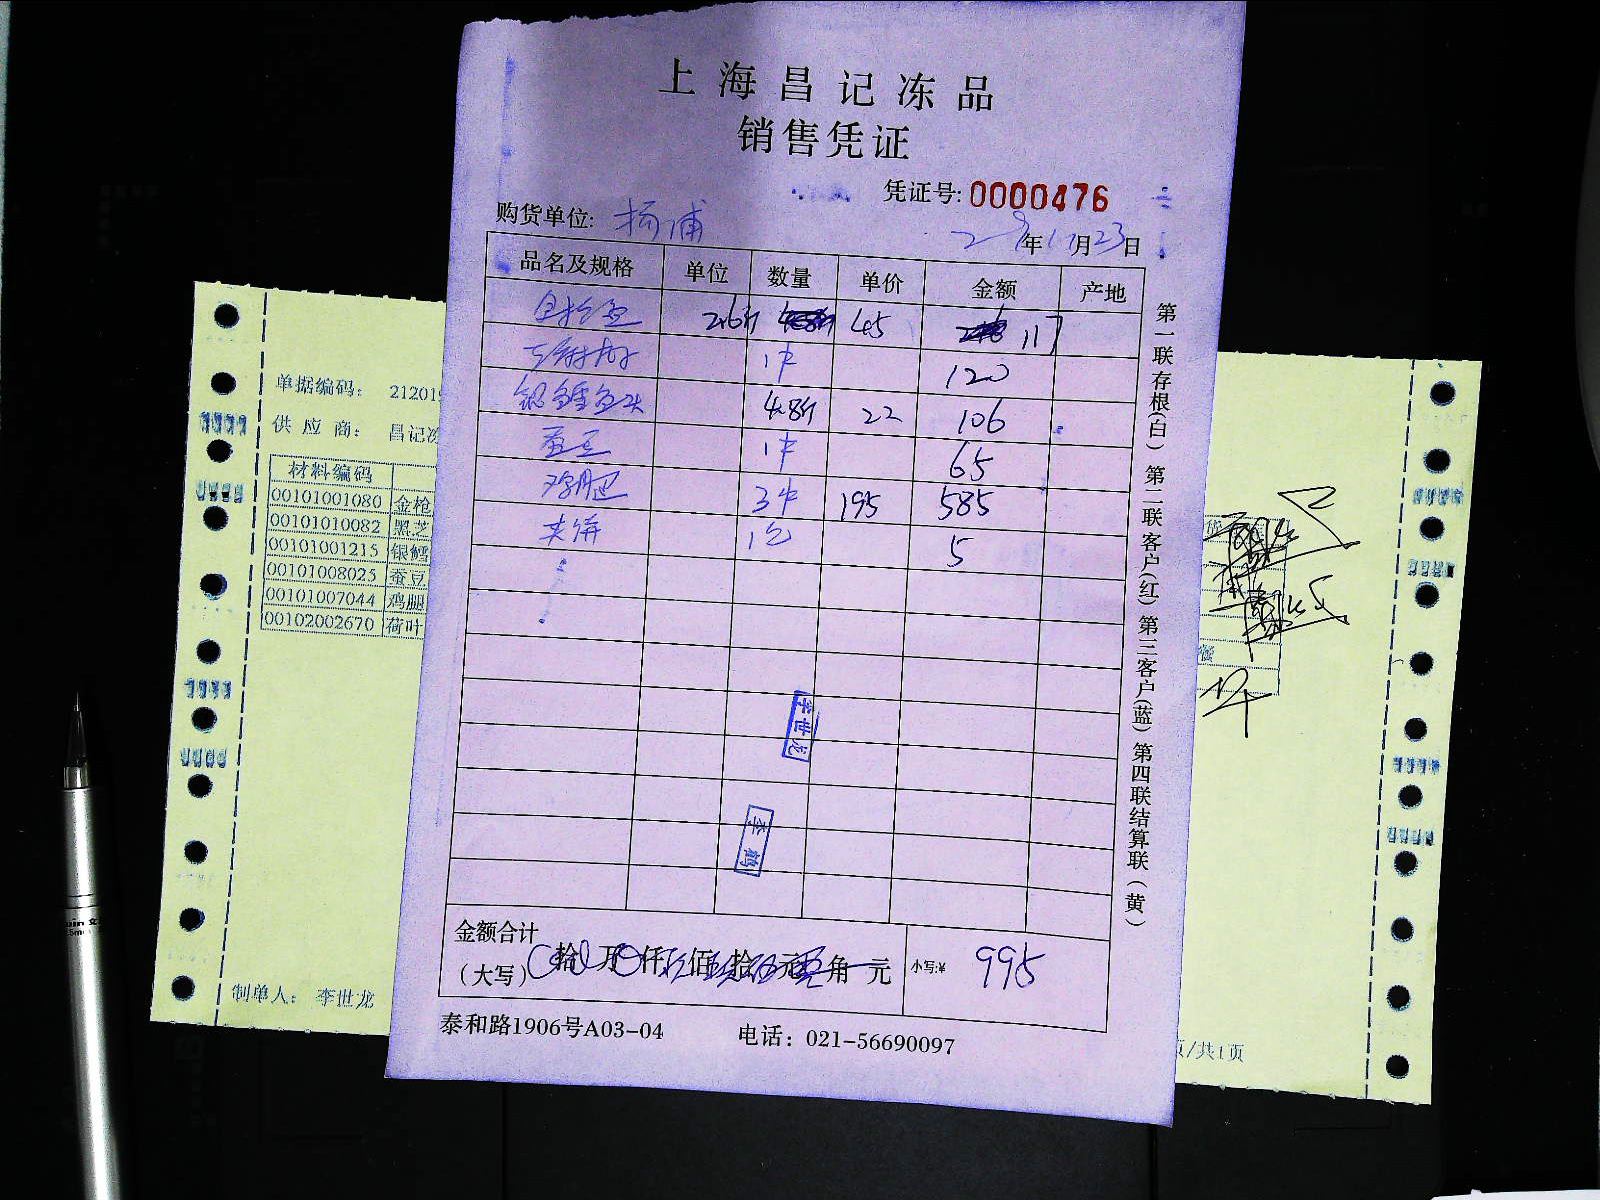 上海昌记冻品
销售凭证
凭证号: 0000476
购货单位: 杨浦
年 月23日
品名及规格 单位 数量 单价 金额 产地
2.6斤 45 117
1件 120
银鳕鱼头 4.8斤 22 106
蚕豆 1件 65
鸡腿 3件 195 585
夹饼 1包 5
李世龙
李鹤
金额合计
(大写) 拾 万 仟 佰 拾 元 角 元 小写:¥ 995
泰和路1906号A03-04 电话: 021-56690097
第一联存根(白) 第二联客户(红) 第三客户(蓝) 第四联结算联(黄)
单据编码: 212019
供应商: 昌记冻
材料编码
00101001080 金枪
00101010082 黑芝
00101001215 银鳕
00101008025 蚕豆
00101007044 鸡腿
00102002670 荷叶
制单人: 李世龙
页/共1页